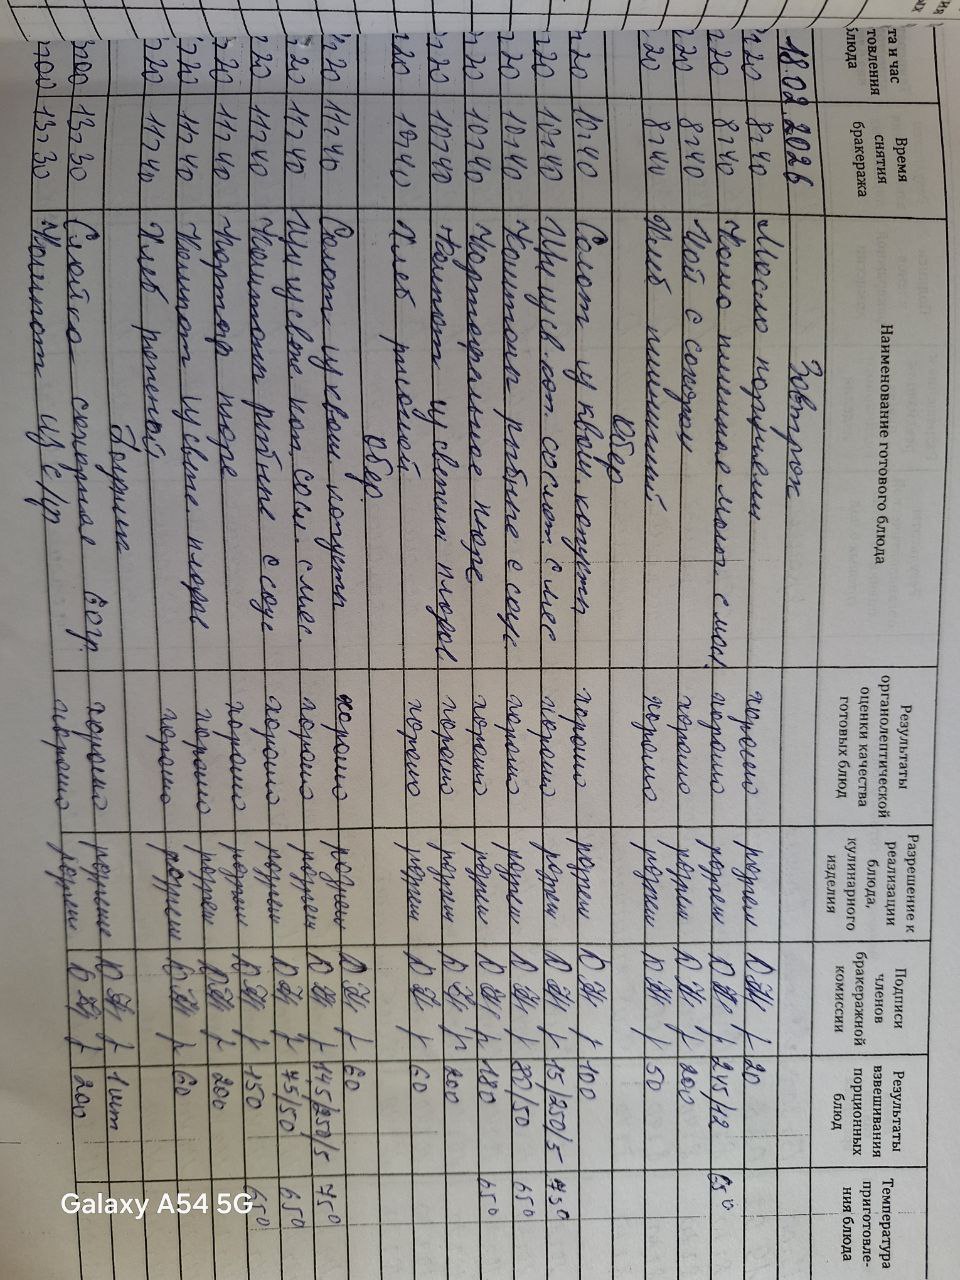 та и час товления блюда | Время снятия бракеража | Наименование готового блюда | Результаты органолептической оценки качества готовых блюд | Разрешение к реализации блюда, кулинарного изделия | Подписи членов бракеражной комиссии | Результаты взвешивания порционных блюд | Температура приготовле-ния блюда
18.02.2026 Завтрак
20 8ч40 Масло порциями хорошо разреш 20
20 8ч40 Каша пшенная молоч. с масл. хорошо разреш 245/12 65°
20 8ч40 Чай с сахаром хорошо разреш 200
20 8ч40 Хлеб пшеничный хорошо разреш 50
Обед
20 10ч40 Салат из кваш. капусты хорошо разреш 100
20 10ч40 Щи из св. кап. со смет. с мяс хорошо разреш 15/250/5 75°
20 10ч40 Котлета рыбные с соус хорошо разреш 80/50 65°
20 10ч40 Картофельное пюре хорошо разреш 180 65°
20 10ч40 Компот из свежих плодов хорошо разреш 200
20 10ч40 Хлеб ржаной хорошо разреш 60
Обед
20 11ч40 Салат из кваш. капусты хорошо разреш 60
20 11ч40 Щи из свеж. кап. со см. с мяс. хорошо разреш 145/250/5 75°
20 11ч40 Котлета рыбные с соус хорошо разреш 75/50 65°
20 11ч40 Картоф пюре хорошо разреш 150 65°
20 11ч40 Компот из свеж. плодов хорошо разреш 200
20 11ч40 Хлеб ржаной хорошо разреш 60
Полдник
13ч30 Слойка сахарная 60гр. хорошо разреш 1шт
13ч30 Компот из с/фр хорошо разреш 200
Galaxy A54 5G